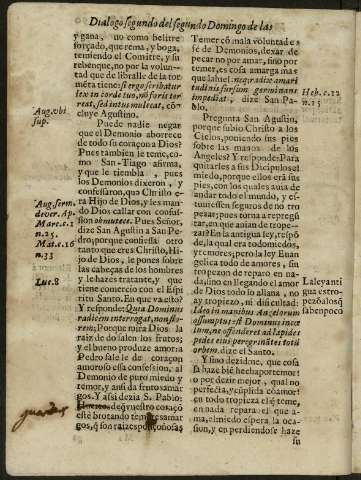 Dialogo segundo del segundo Domingo de las
y gana, no como belitre
forçado, que rema, y boga,
temiendo el Comitre, y su
rebenque, no por la volun-
tad que de libralle de la tor-
méta tiene: si ergo scribatur
lex in corde tuo, nõ foris ter
reat, sed intus mulceat, cõ-
cluye Agustino.
Puede nadie negar
que el Demonio aborrece
de todo su coraçon a Dios?
Pues tambien le teme,
como San-Tiago afirma,
y que le tiembla, pues
los Demonios dixeron, y
confessaron, que Christo e-
ra Hijo de Dios, y les man-
dò Dios callar con confus-
sion obmutece. Pues Señor,
dize San Agustin a San Pe-
dro; porque confiessa otro
tanto que eres Christo, Hi-
jo de Dios, le pones sobre
las cabeças de los hombres
y le hazes tratante, y que
tiene comercio con el Espi
ritu Santo. En que va esto?
Y responde: Quia Dominus
radicem interrogat, non flo-
rem; Porque mira Dios la
raiz do salen los frutos;
y el bueno produze amor: a
Pedro sale le de coraçon
amoroso essa confession, al
Demonio de puro miedo y
temor, y ansi da fruto samar
gos. Y assi dezia S. Pablo:
deq̃ vuestro coraçõ
esté brotando temores amar
gos, q̃ son raizes põçoñosas
Aug. vbi
sup.
Aug. serm.
de ver. Ap.
Marc. c. 1
n. 25.
Mat. c. 16
n. 33
Luc. 8
guardas
Temer cõ mala voluntad es
se de Demonios, dexar de
pecar no por amar, sino por
temer, es cosa amarga mas
que la hiel: neq; radix amari
tudinis sursum germinans
impediat, dize San Pa-
blo.
Pregunta San Agustin,
porque subio Christo a los
Cielos, poniendo sus pies
sobre las manos de los
Angeles? Y responde: Para
quitarles a sus Dicipulos el
miedo, porque ellos erã sus
pies, con los quales auia de
andar todo el mundo, y es-
tuuiessen seguros de no tro
peçar; pues torna a repregũ
tar, en que auian de trope-
çar? En la antigua ley, respõ
de, la qual era todo miedos,
y temores; pero la ley Euan
gelica todo de amores, sin
tropezon de reparo en na-
da, sino en llegando el amor
de Dios todo lo allana, no
ay tropiezo, ni dificultad:
Ideo in manibus Angelorum
assumptus est Dominus in cæ
lum, ne offenderet ad lapidẽ
pedes eius peregrinãtes totũ
orbem, dize el Santo.
Y sino dezidme, que cosa
se haze biẽ hecha por temor?
o por dezir mejor, qual no
perfecta, y cũplida cõ amor?
en todo tropieça el q̃ teme,
en nada repara el que a-
ma, el miedo espera la oca-
sion, y en perdiendose haze
su
Heb. c. 12
n. 15
La ley anti
gua es tro-
peçõ a los q̃
saben poco